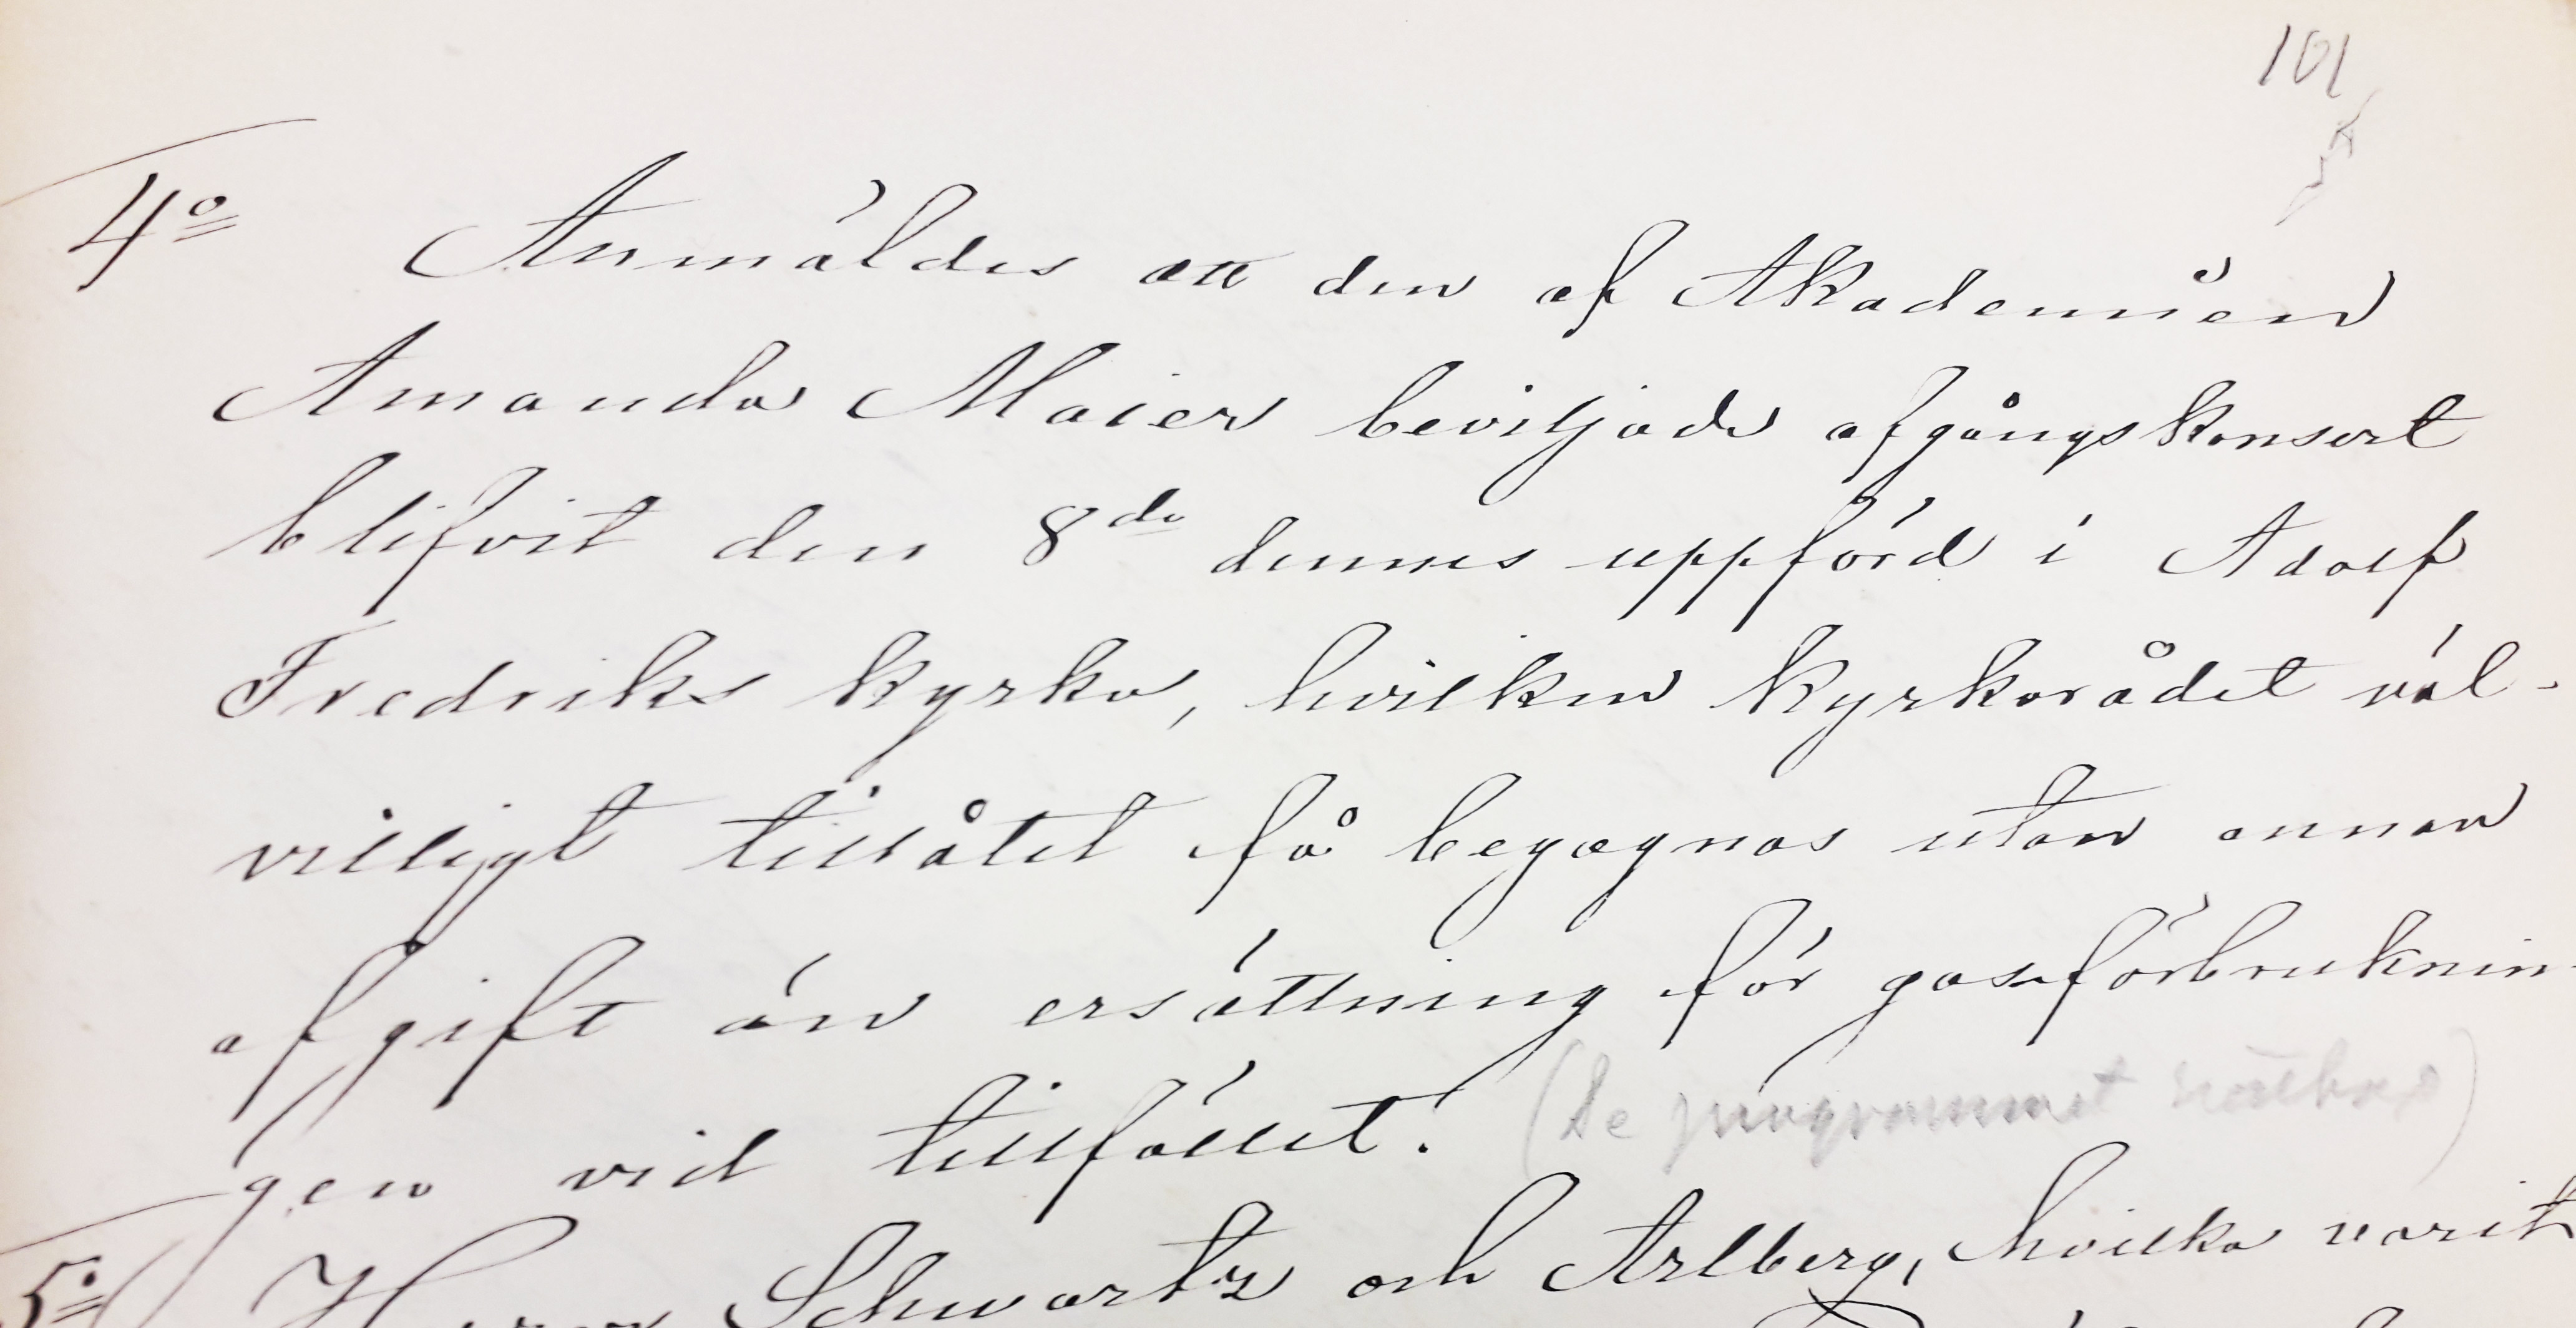 101
4º Anmäldes att den af Akademien
Amanda Maier beviljade afgångskonsert
blifvit den 8de dennes uppförd i Adolf
Fredriks kyrka, hvilken kyrkorådet väl-
villigt tillåtit få begagnas utan annan
afgift än ersättning för gasförbruknin-
gen vid tillfället. (Se programmet
5º Herrar Schwartz och Arlberg, hvilka varit